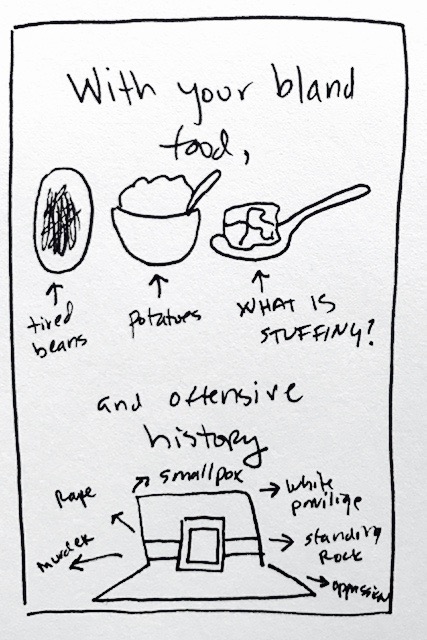 With your bland
food,
tired
beans
potatoes
WHAT IS
STUFFING?
and offensive
history
smallpox
Rape
White
privilige
murder
standing
Rock
oppression